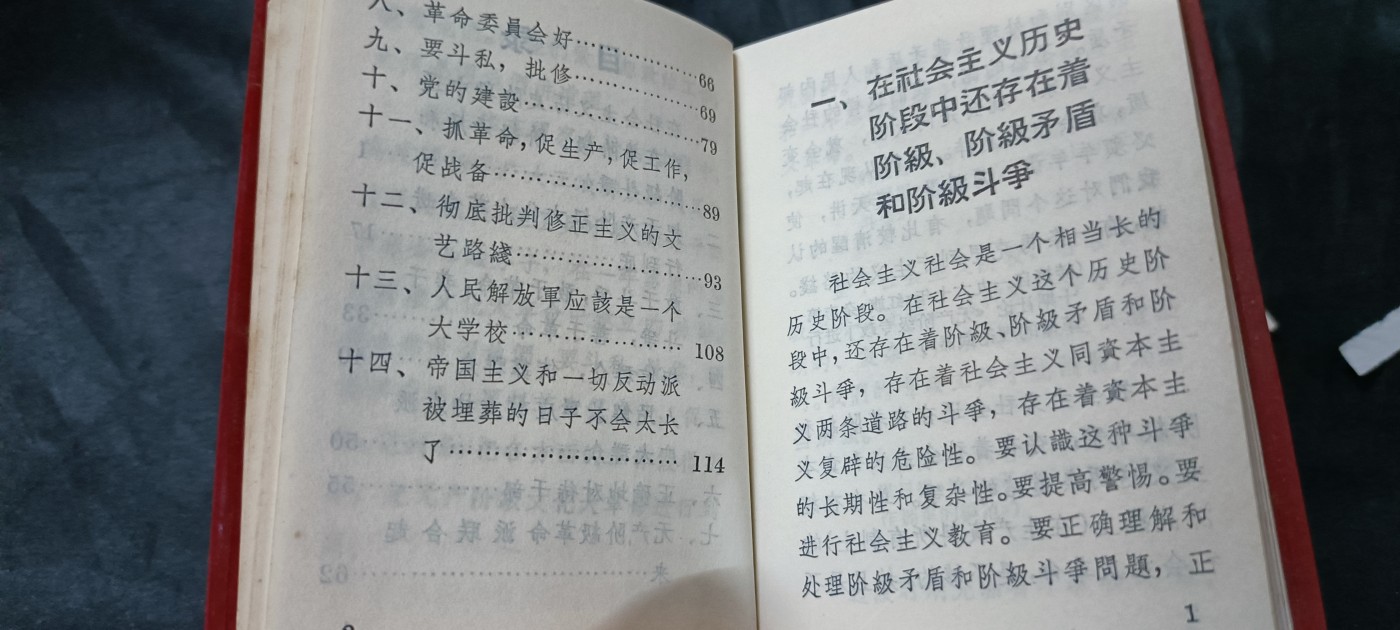 八、革命委員会好……………66
九、要斗私，批修……………69
十、党的建設…………………79
十一、抓革命，促生产，促工作，
促战备…………………89
十二、彻底批判修正主义的文
艺路綫…………………93
十三、人民解放軍应該是一个
大学校…………………108
十四、帝国主义和一切反动派
被埋葬的日子不会太长
了………………………114
一、在社会主义历史
阶段中还存在着
阶級、阶級矛盾
和阶級斗爭
社会主义社会是一个相当长的
历史阶段。在社会主义这个历史阶
段中，还存在着阶級、阶級矛盾和阶
級斗爭，存在着社会主义同資本主
义两条道路的斗爭，存在着資本主
义复辟的危险性。要认識这种斗爭
的长期性和复杂性。要提高警惕。要
进行社会主义教育。要正确理解和
处理阶級矛盾和阶級斗爭問題，正
1